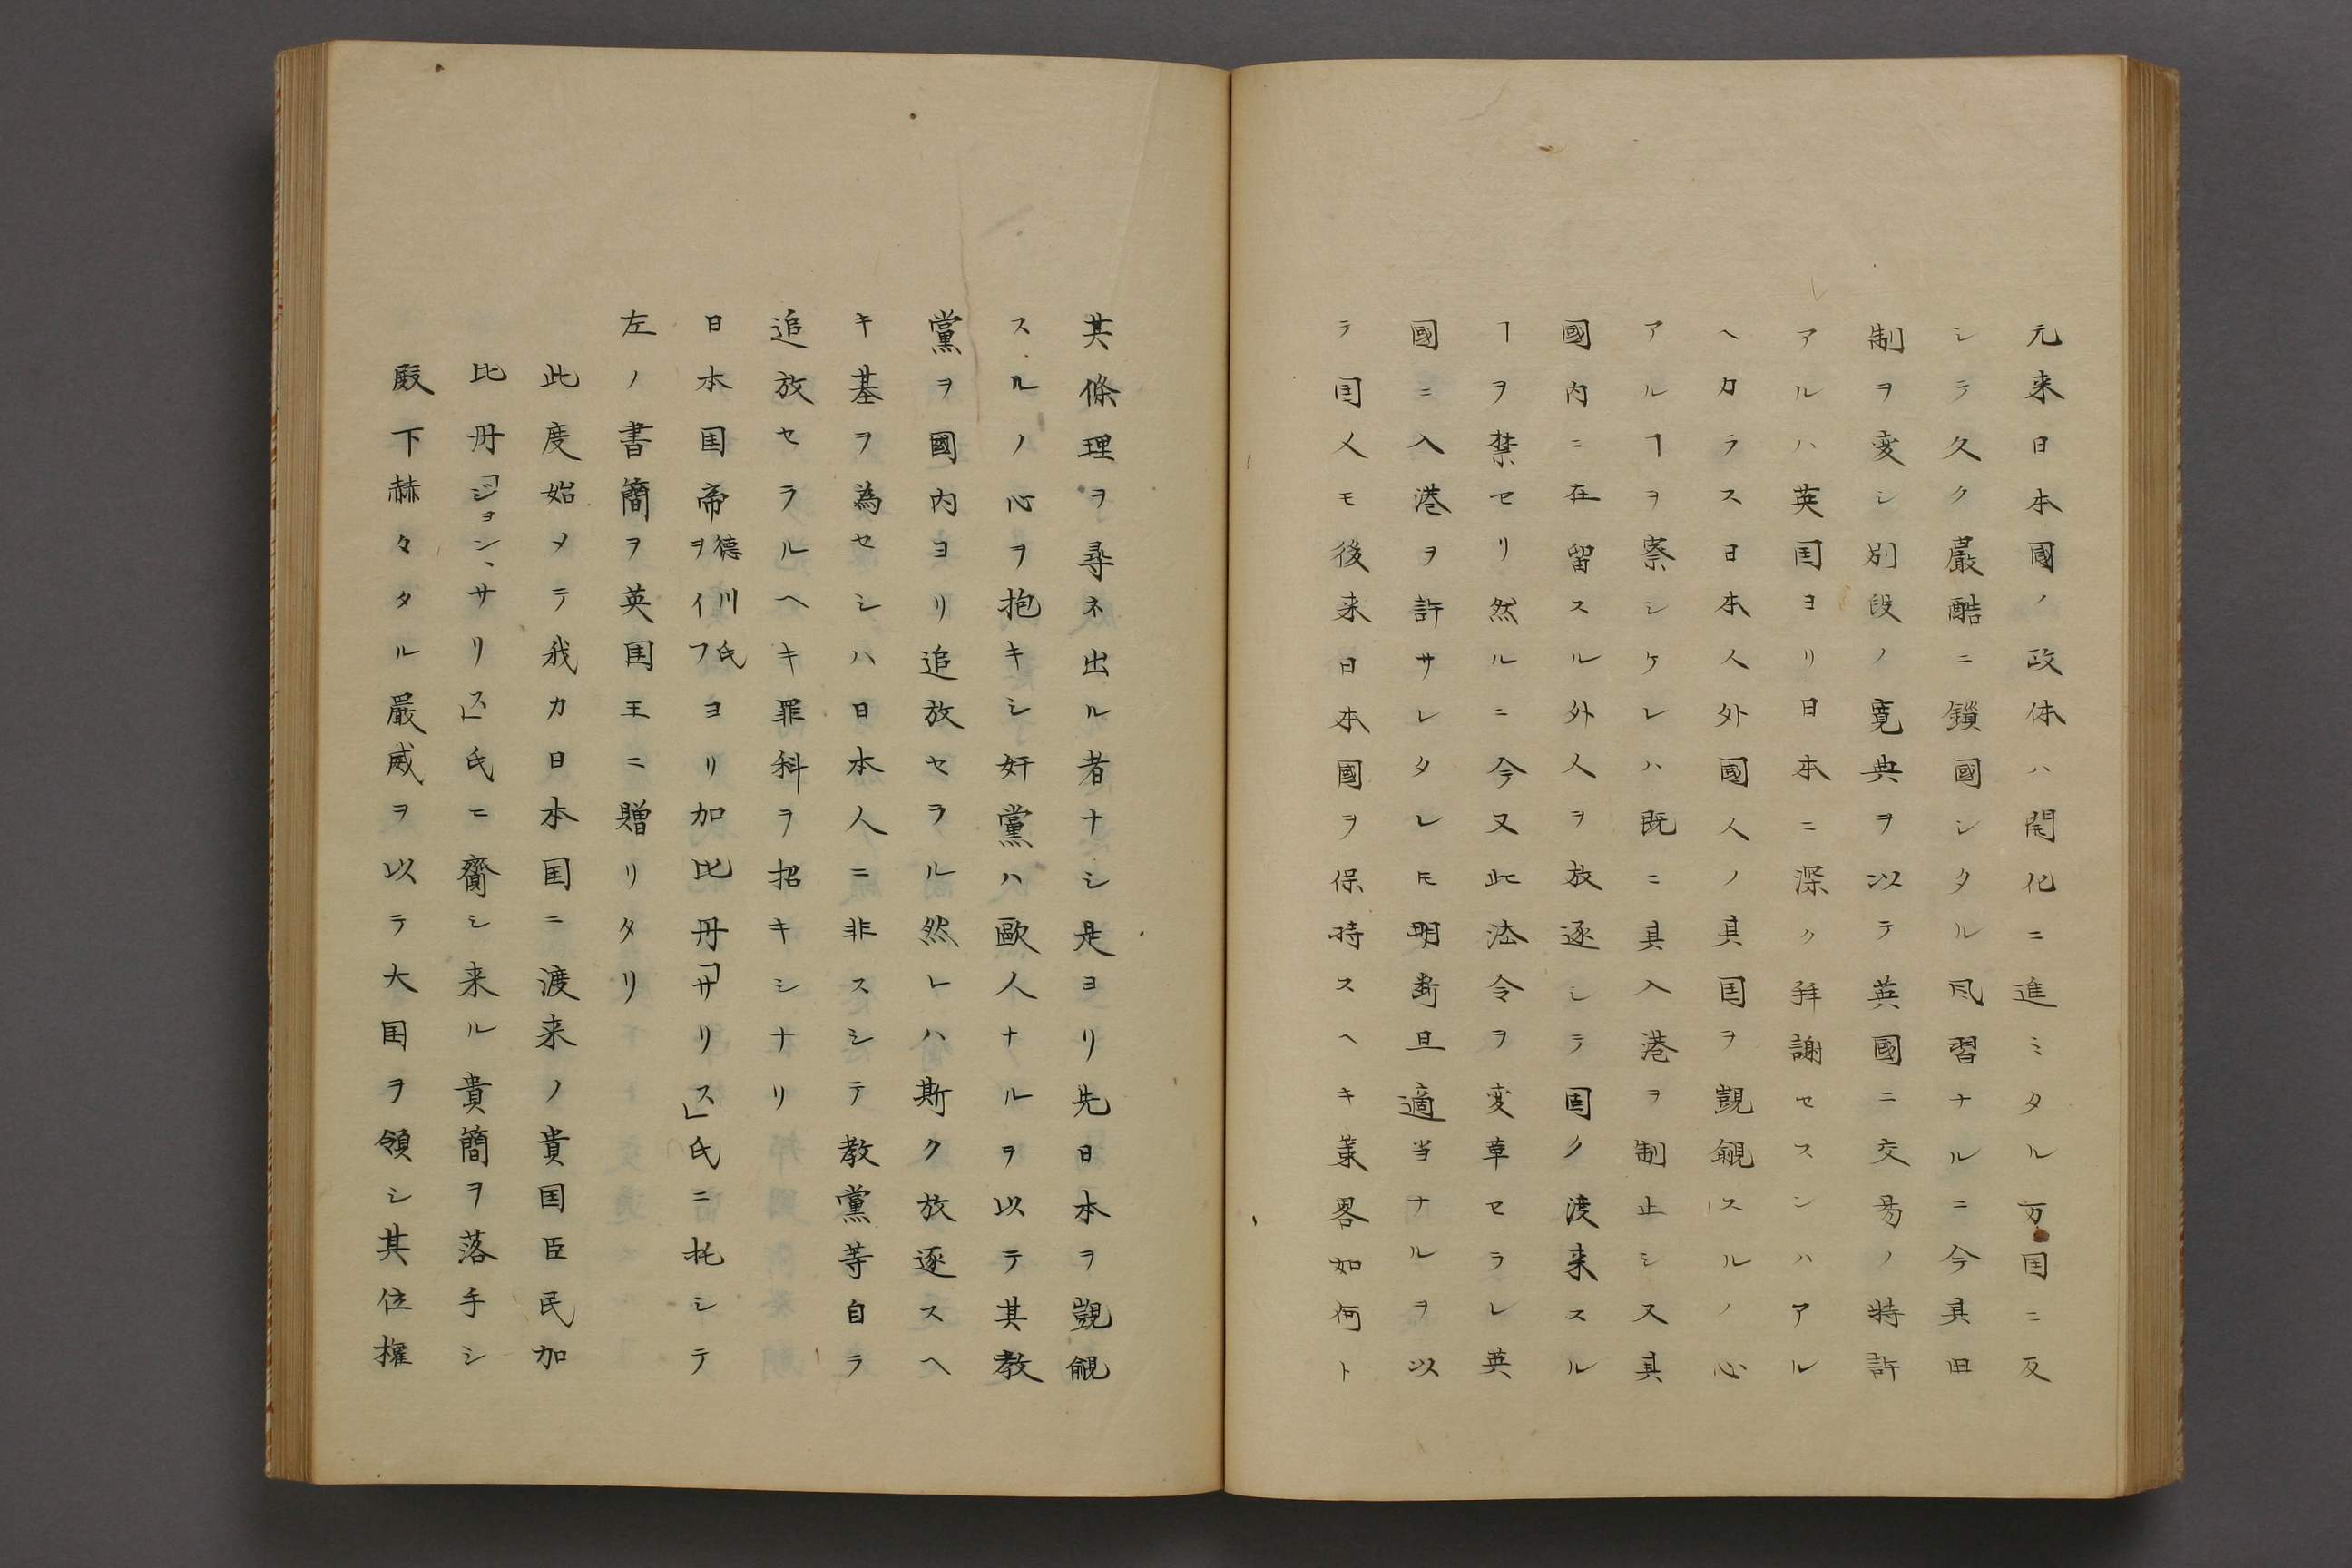 元来日本國ノ政体ハ開化ニ進ミタル万国ニ反
シテ久ク嚴酷ニ鎖國シタル風習ナルニ今其旧
制ヲ変シ別段ノ寛典ヲ以テ英國ニ交易ノ特許
アルハ英国ヨリ日本ニ深ク拜謝セスンハアル
ヘカラス日本人外國人ノ其国ヲ覬覦スルノ心
アルヿヲ察シケレハ既ニ其入港ヲ制止シ又其
國内ニ在留スル外人ヲ放逐シテ固ク渡来スル
ヿヲ禁セリ然ルニ今又此法令ヲ変革セラレ英
國ニ入港ヲ許サレタレ𪜈明断且適当ナルヲ以
ラ国人モ後来日本國ヲ保持スヘキ策畧如何ト
其條理ヲ尋ネ出ル者ナシ是ヨリ先日本ヲ覬覦
スルノ心ヲ抱キシ奸黨ハ歐人ナルヲ以テ其教
黨ヲ國内ヨリ追放セラル然レハ斯ク放逐スヘ
キ基ヲ為セシハ日本人ニ非スシテ教黨等自ラ
追放セラルヘキ罪科ヲ招キシナリ
日本国帝徳川氏ヲイフヨリ加比丹「サリス」氏ニ托シテ
左ノ書簡ヲ英国王ニ贈リタリ
此度始メテ我カ日本国ニ渡来ノ貴国臣民加
比丹「ジョン、サリス」氏ニ齎シ来ル貴簡ヲ落手シ
殿下赫々タル嚴威ヲ以テ大国ヲ領シ其位権